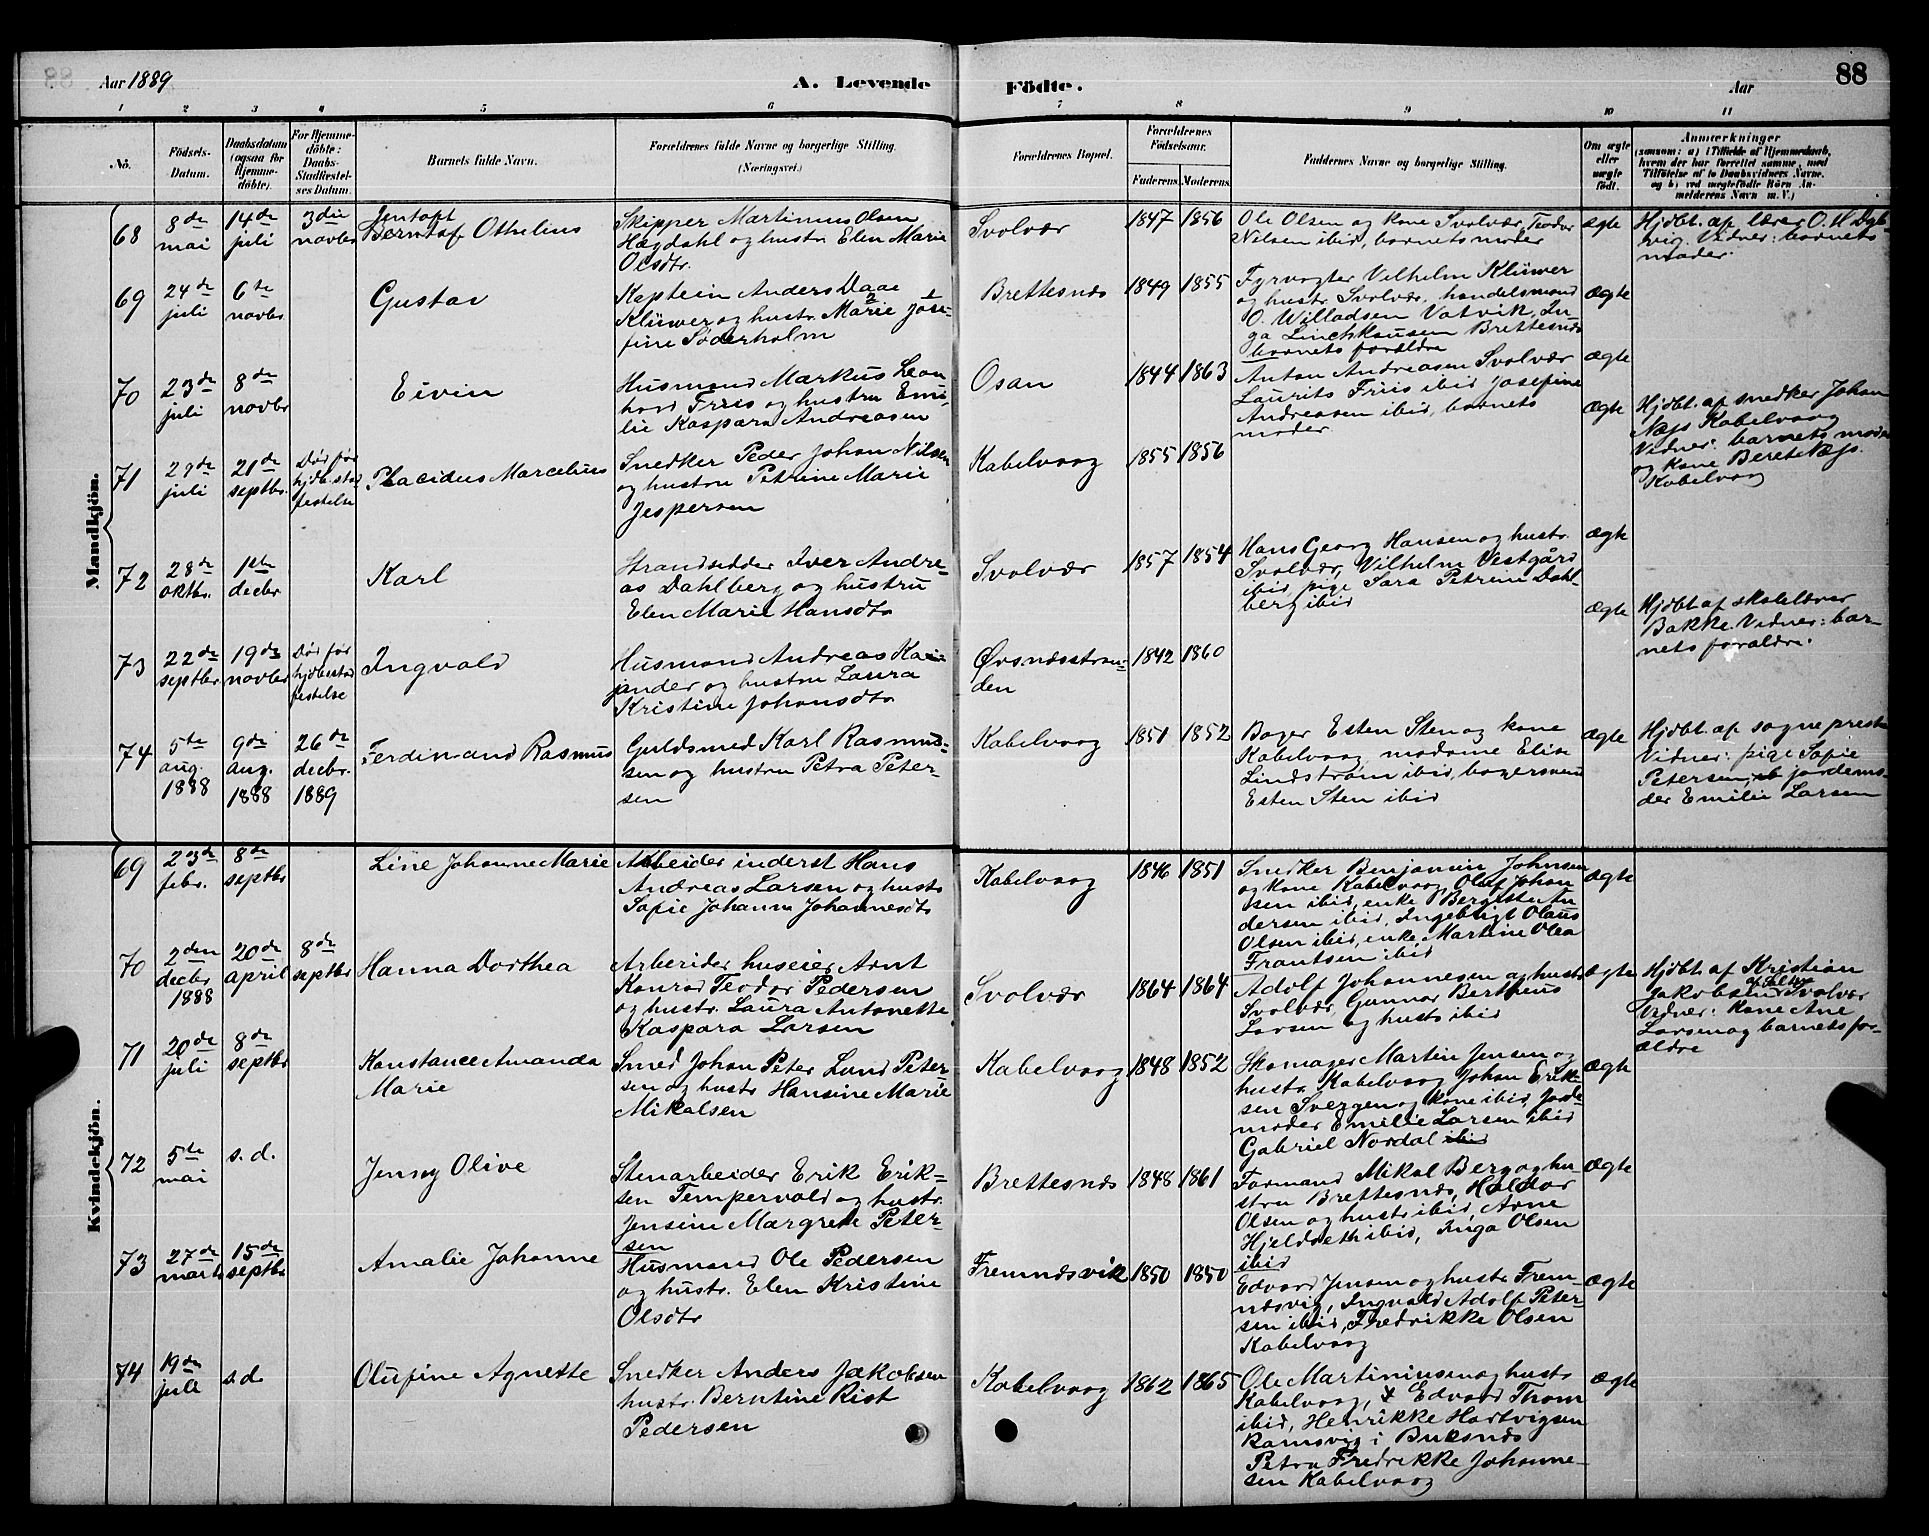 Aar 1889
A. Levende
Födte.
Aar
88
1 2 3 4 5 6 7 8 9 10 11
No.
Födsels-
Datum.
Daabsdatum
(ogsaa for
Hjemme-
döbte).
For Hjemme-
döbte:
Daabs-
Stadfæstel-
ses Datum.
Barnets fulde Navn.
Forældrenes fulde Navne og borgerlige Stilling.
(Næringsvei.)
Forældrenes Bopæl.
Forældrenes
Födselsaar.
Faderens. Moderens.
Faddernes Navne og borgerlige Stilling.
Om ægte
eller
uægte
födt.
Anmærkninger
(saasom: a) i Tilfælde af Hjemmedaab,
hvem der har forrettet samme, med
Tilföielse af to Daabsvidners Navne,
og b) ved uægtefödte Börn An-
melderens Navn m. V.)
Mandkjön.
68
8de
mai
14de
juli
3die
novbr
Jentoft
Berntof Othelius
Skipper Martinus Olsen
Hægdahl og hustr. Elen Marie
Olsdtr.
Svolvær
1847 1856
Ole Olsen og kone Svolvær, Teodor
Nilsen ibid, barnets moder
ægte
Hjdbt. af lærer O. M. Dyb
vig. Vidner: barnets
moder.
69
24de
juli
6te
novbr
Gustav
Kaptein Anders Daae
Klüwer og hustr. Marie 2 Jose- 1
fine Søderholm
Brettesnæs
1849 1855
Fyrvogter Vilhelm Klüwer
og hustr. Svolvær, handelsmand
O. Willadsen Vatvik, In-
ga Linckhausen Brettesnæs
barnets forældre
ægte
70
23de
juli
8de
novbr
Eivin
Husmand Markus Leon
hard Friis og hustru Emi-
lie Kaspara Andreasen
Osan
1844 1863
Anton Andreasen Svolvær
Laurits Friis ibid, Josefine
Andreasen ibid, barnets
moder.
ægte
71
29de
juli
21de
septbr.
Død før
hjdb. stad
festelse
Placidus Marcelius
Snedker Peder Johan Nilsen
og hustru Petrine Marie
Jespersen
Kabelvaag
1855 1856
ægte
Hjdbt. af snedker Johan
Næss Kabelvaag
Vidner: barnets moder
og kone Berete Næss.
Kabelvaag
72
28de
oktbr.
1ste
decbr
Karl
Strandsidder Iver Andre-
as Dahlberg og hustru
Elen Marie Hansdtr
Svolvær
1857 1854
Hans Georg Hansen og hustr.
Svolvær, Vilhelm Vestgård
ibid, pige Sara Petrine Dahl-
berg ibid
ægte
73
22de
septbr
19de
novbr
Død før
hjdb. stad
festelse
Ingvald
Husmand Andreas Kai-
jander og hustru Laura
Kristine Johansdtr
Ørsnæsstran-
den
1842 1860
ægte
Hjdbt. af skolelærer
Bakke. Vidner: bar-
nets forældre.
74
5te
aug.
1888
9de
aug.
1888
26de
decbr.
1889
Ferdinand Rasmus
Guldsmed Karl Rasmus-
sen og hustru Petra Peter-
sen
Kabelvaag
1851 1852
Bager Esten Sten og kone
Kabelvaag, madame Elise
Lindstrøm ibid, bagersvend
Esten Sten ibid
ægte
Hjdbt. af sogneprest
Vidner: pige Sofie
Petersen, jordemo-
der Emilie Larsen
Kvindekjön.
69
23de
febr.
8de
septbr
Line Johanne Marie
Arbeider inderst Hans
Andreas Larsen og hustr
Sofie Johanna Johannesdtr
Kabelvaag
1846 1851
Snedker Benjamin Johnsen
og kone Kabelvaag, Oluf Johan
sen ibid, enke Bergitte An
dersen ibid, Ingebrigt Olaus
Olsen ibid, enke Martine Olea
Frantsen ibid
ægte
70
2den
decbr
1888
20de
april
8de
septbr
Hanna Dorthea
Arbeider huseier Arnt
Konrad Teodor Pedersen
og hustr. Laura Antonette
Kaspara Larsen
Svolvær
1864 1864
Adolf Johannesen og hustr
Svolvær, Gunnar Bertheus
Larsen og hustr ibid
ægte
Hjdbt. af Kristian
Jakobsen Svolvær
Vidner: Kone Ane
Larsen og barnets for-
ældre
71
20de
juli
8de
septbr
Konstance Amanda
Marie
Smed Johan Peter Lund Peter-
sen og hustr Hansine Marie
Mikalsen
Kabelvaag
1848 1852
Skomager Martin Jensen og
hustr. Kabelvaag, Johan Erik-
sen Svergen og kone ibid, Jorde-
moder Emelie Larsen ibid
Gabriel Nordal ibid
ægte
72
5te
mai
s. d.
Jenny Olive
Stenarbeider Erik Erik-
sen Tempervold og hustr.
Jensine Margrete Peter-
sen
Brettesnæs
1848 1861
Formand Mikal Berg og hu-
stru Brettesnæs, Haldor
Olsen og hustr ibid, Arne
Hjeldseth ibid, Inga Olsen
ibid
ægte
73
27de
marts
15de
septbr
Amalie Johanne
Husmand Ole Pedersen
og hustr. Elen Kristine
Olsdtr
Fremnæsvik
1850 1850
Edvard Jensen og hustr Frem-
næsvig, Ingvald Adolf Peter-
sen ibid, Fredrikke Olsen
Kabelvaag
ægte
74
19de
juli
s. d.
Olufine Agnette
Snedker Anders Jakobsen
hustr. Berntine Rist
Pedersen
Kabelvaag
1862 1865
Ole Martiniussen og hustr
Kabelvaag, Edvard Thom
ibid, Henrikke Hartvigsen
Ramsvig i Buksnæs
Petra Fredrikke Johanne-
sen Kabelvaag
ægte